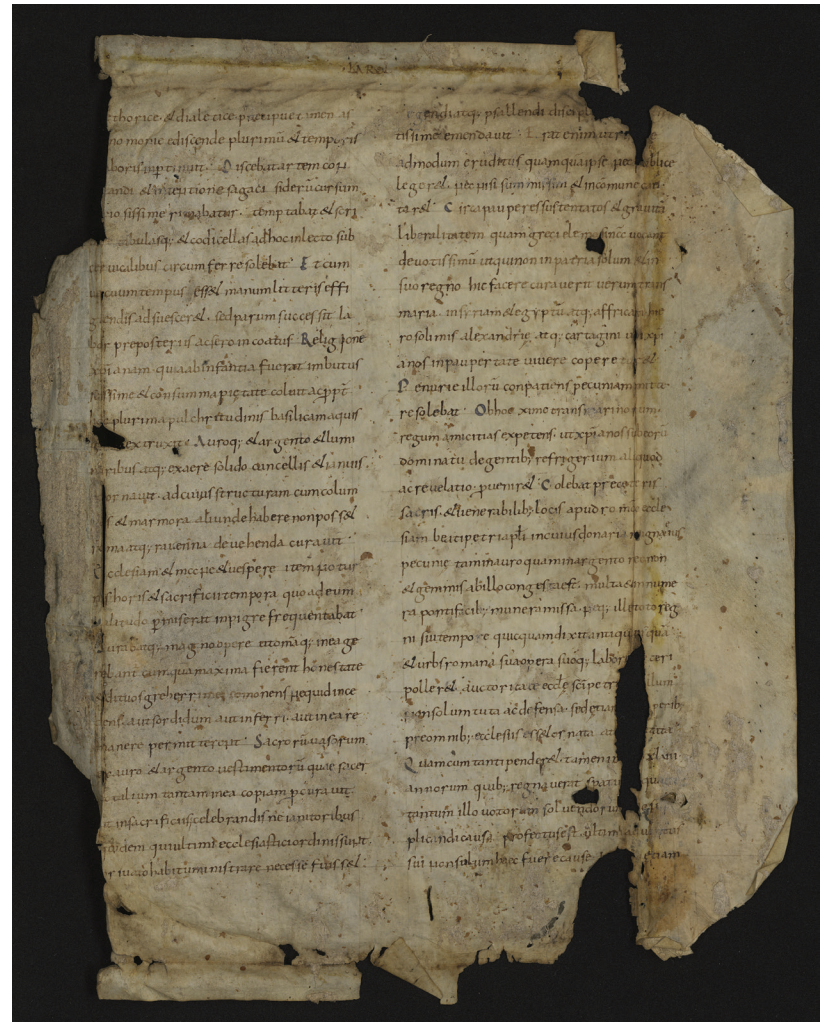 KARO
thorice & dialetice precipue tamen as
no momie ediscende plurimū & temporis
boris inpertiuit . Discebat artem con
andi & inteptione sagaci siderū cursum
io sissime rimabatur . temptabat & scri
tabulasq; & codicellas ad hoc in lecto sub
ceruicalibus circumferre solebat . Et cum
uacuum tempus ess& manum litteris effi
endis adsuescer& . sed parum successit la
or preposterus ac sero incoatus . Religionē
xpianam qua ab infantia fuerat imbutus
issime & cū summa pietate coluit ac ppt
plurima pulchritudinis basilicam aquis
extruxit . Auroq; & argento & lumi
naribus atq; ex aere solido cancellis & ianuis
ornauit . ad cuius structuram cum colum
s & marmora aliunde habere non poss&
roma atq; rauenna deuehenda curauit .
Ecclesiam & mane & uespere item noctur
nis horis & sacrificii tempora quo ad eum
ualitudo pmiserat inpigre frequentabat .
Curabatq; magno opere ut omīa q; in ea ge
rebant cum quam maxima fierent honestate
edituos creberrime commonens ne quid inde
cens . aut sordidum aut inferri . aut in ea re
manere permitterent . Sacrorū uasorum
ex auro & argento uestimentorū quae sacer
talium tantam in ea copiam pcurauit .
ut in sacrificiis celebrandis ne ianitoribus
quidem qui ultimi ecclesiastici ordinis sunt
priuato habitu ministrare necesse fuiss& .
legendi atq; psallendi discipl
tissime emendauit . Erat enim utri
admodum eruditus quamquam ipse nec publice
leger& . nec nisi summissim & in comune can
tar& . Circa pauperes sustentatos & gratuitā
liberalitatem quam greci elemosinā uocant
deuotissimū ut qui non in patria solum & in
suo regno hic facere curauerit uerum trans
maria . in syriam & egyptū atq; affricā hie
rosolimis alexandrie atq; cartagini ubi xpi
anos in paupertate uiuere conpere
Penurie illorū conpatiens pecuniam mitte
re solebat . Ob hoc xime transmarinorum
regum amicitias expetens . ut xpianos sub eorū
dominatu degentib; refrigerium aliquod
ac reuelatio pueniret . Colebat pre ceteris
sacris & uenerabilib; locis apud romā eccle
siam beati petri apli in cuius donaria magna uis
pecunię tam in auro quam in argento necnon
& gemmis ab illo congesta est . multa & innume
ra pontificib; munera missa . neq; ille toto reg
ni sui tempore quicquam duxit antiquius quā
& urbs romana sua opera suoq; labore ueteri
poller& auctoritate & eccle sci petri illum
non solum tuta ac defensa . sed etiam
pre omnib; ecclesiis ess& ornata at ditata
Quam cum tanti pender& . tamen in xl uii
annorum quib; regnauerat spatiū
tantum illo uotorum soluendorum
plicandi causa profectus est . Ultimi
sui non solum hae fuere causę etiam